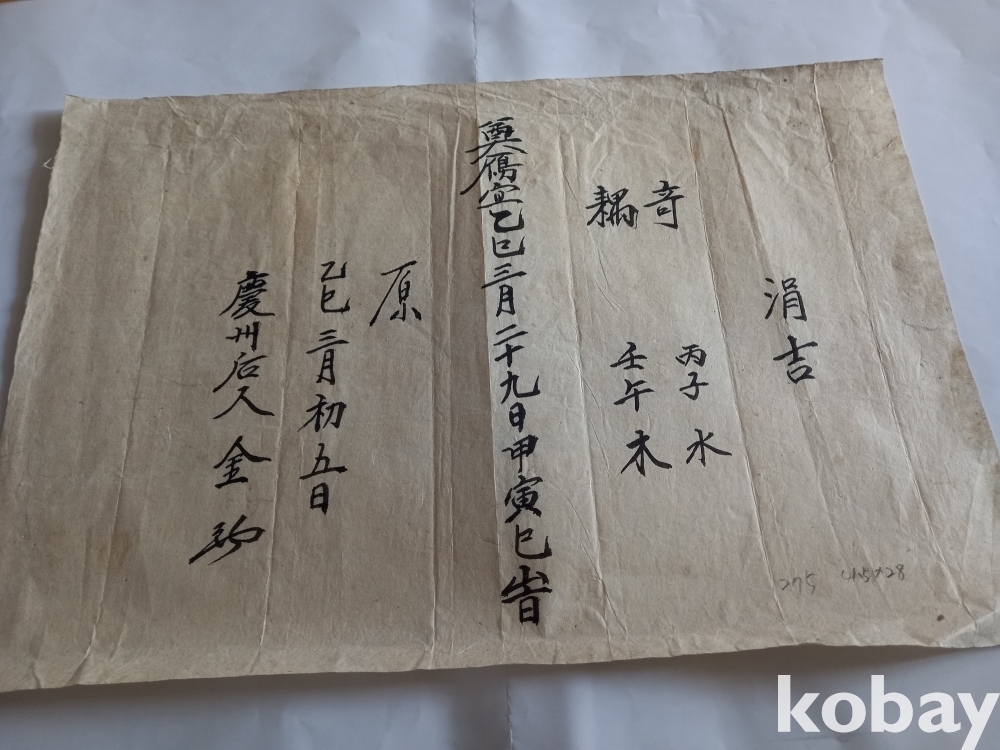 涓吉
奇 丙子 水
耦 壬午 木
奠鴈宜乙巳三月二十九日甲寅巳旹
原
乙巳 三月 初五日
慶州后人 金
275 41.5×28
kobay